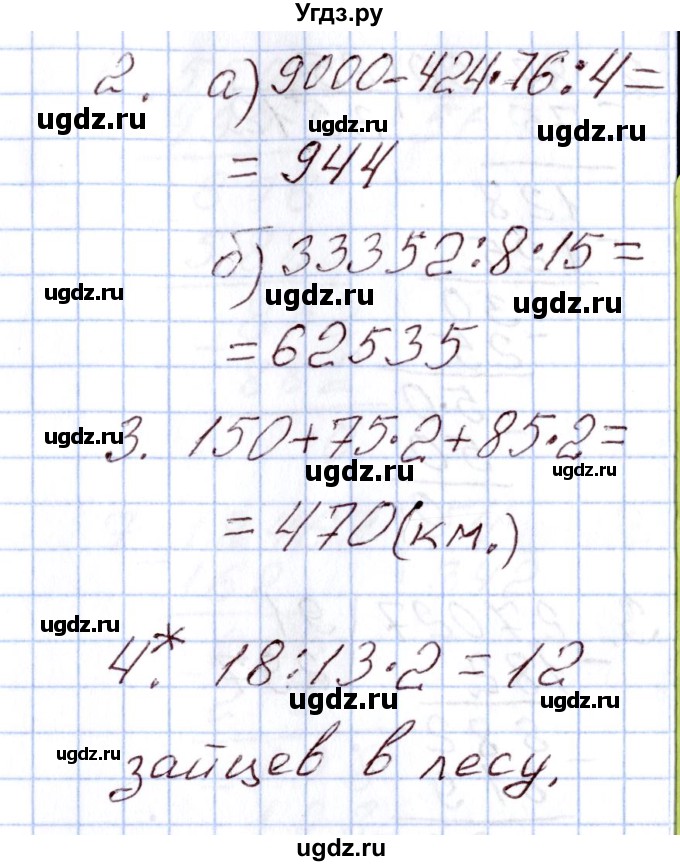 Угдз.ру
2. а) 9000-424·76:4=
ugdz.ru ugdz.ru ugdz.ru
= 944
б) 33352:8·15=
ugdz.ru ugdz.ru ugdz.ru
= 62535
3. 150+75·2+85·2=
ugdz.ru ugdz.ru ugdz.ru
= 470 (км.)
ugdz.ru
4.* 18:13·2=12
ugdz.ru ugdz.ru
ugdz.ru
зайцев в лесу.
ugdz.ru